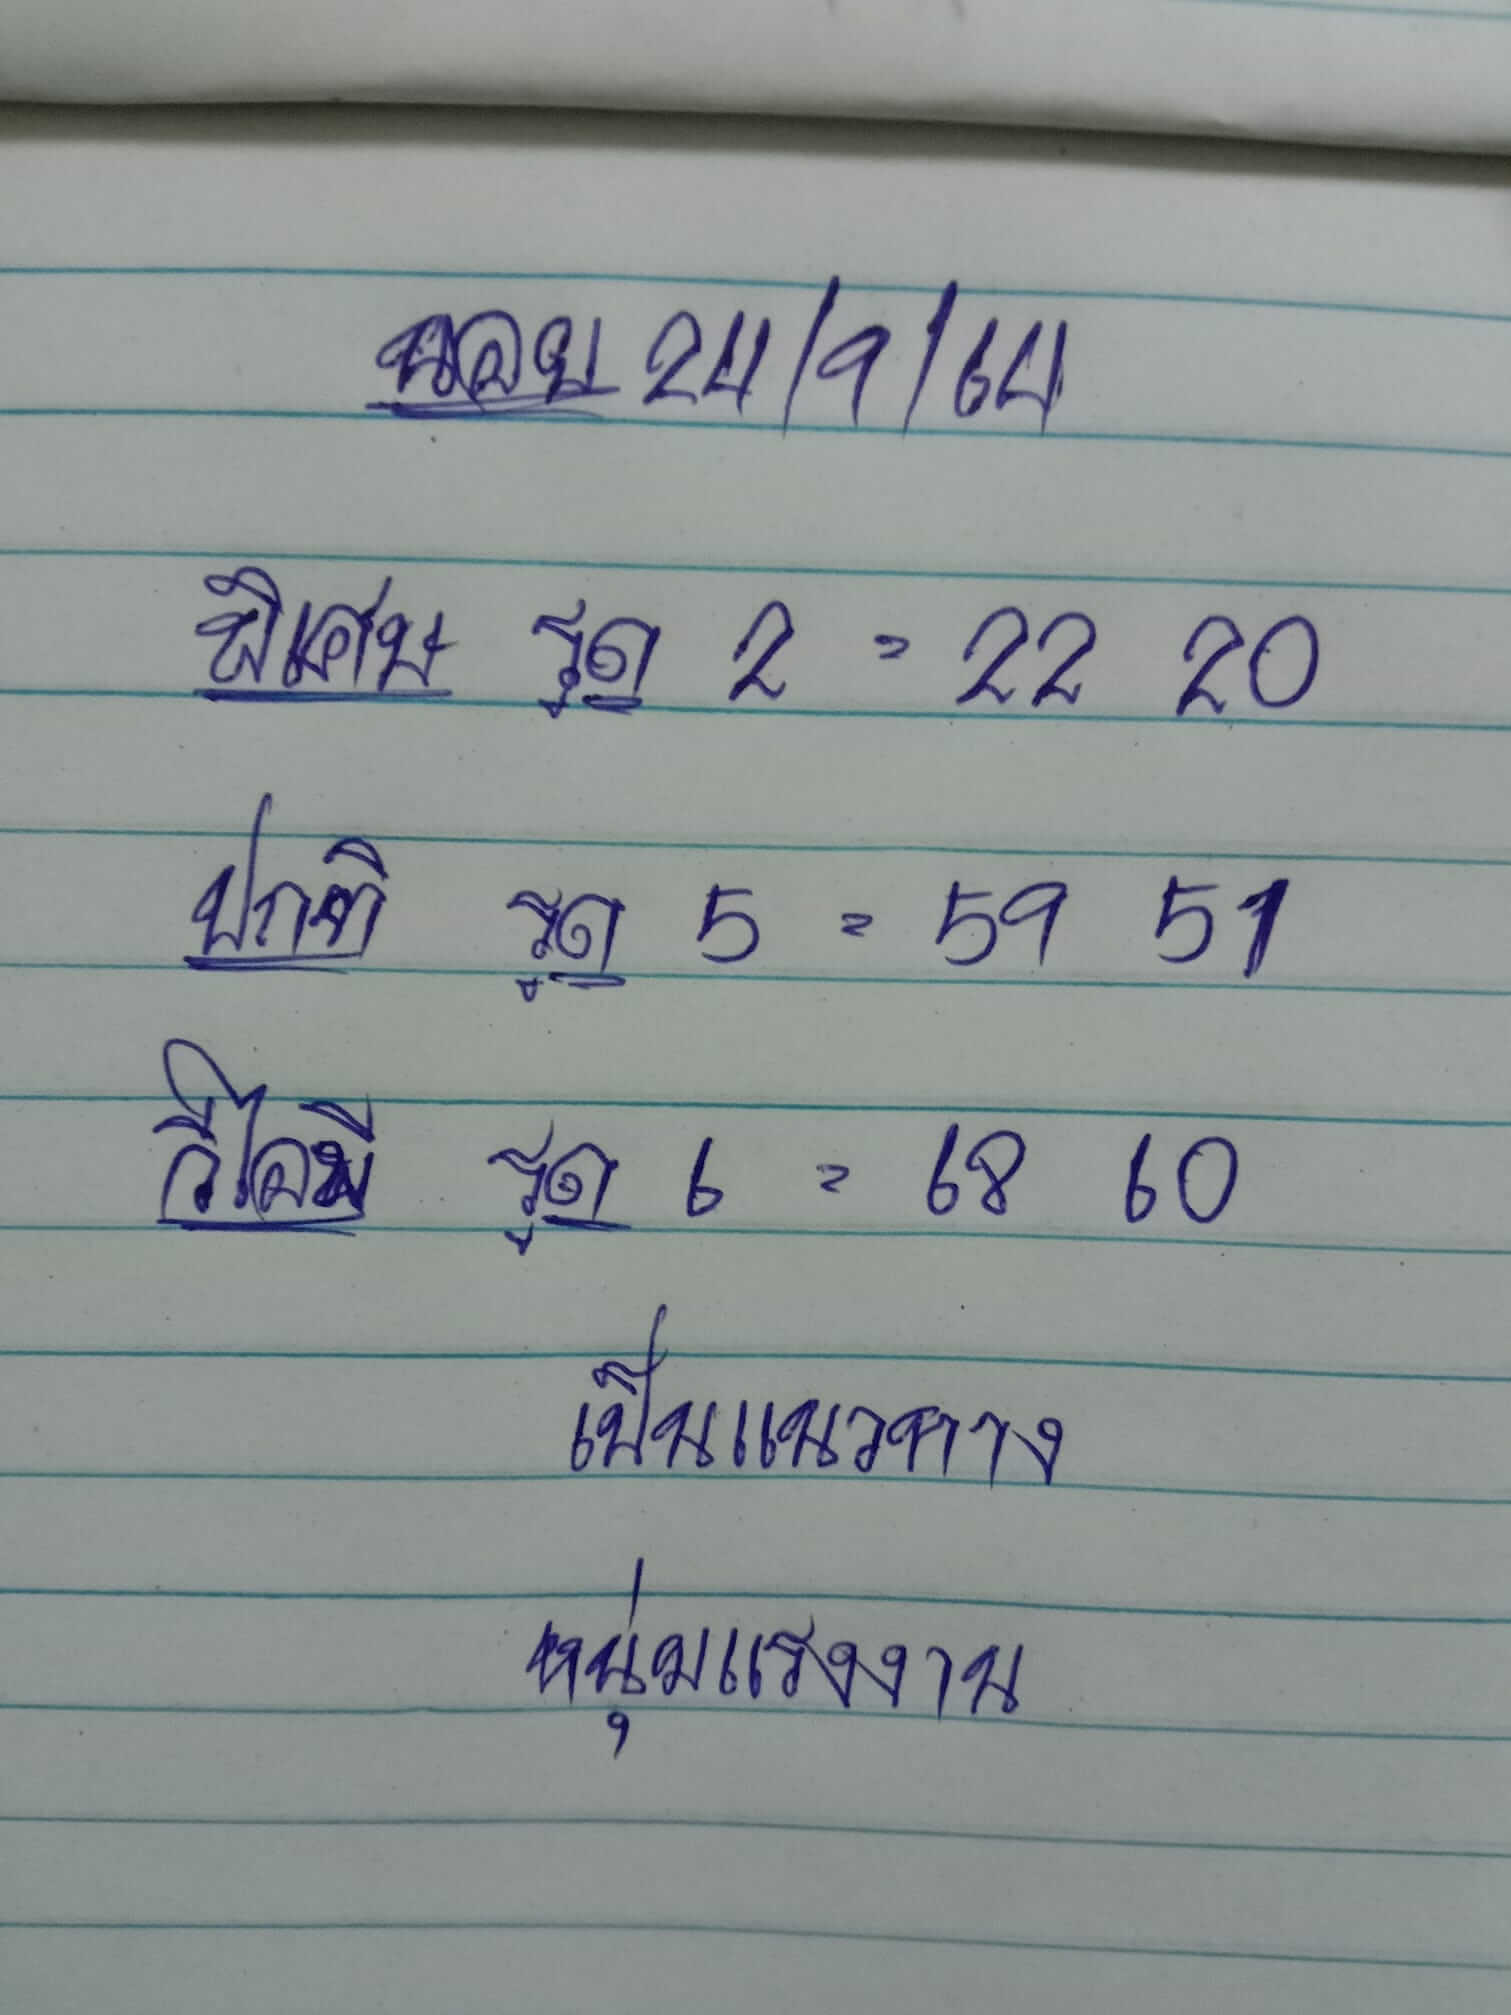 นอย 24/9/64
พิเศษ รูด 2 = 22 20
ปกติ รูด 5 = 59 51
วีไอพี รูด 6 = 68 60
เป็นแนวทาง
หนุ่มแรงงาน